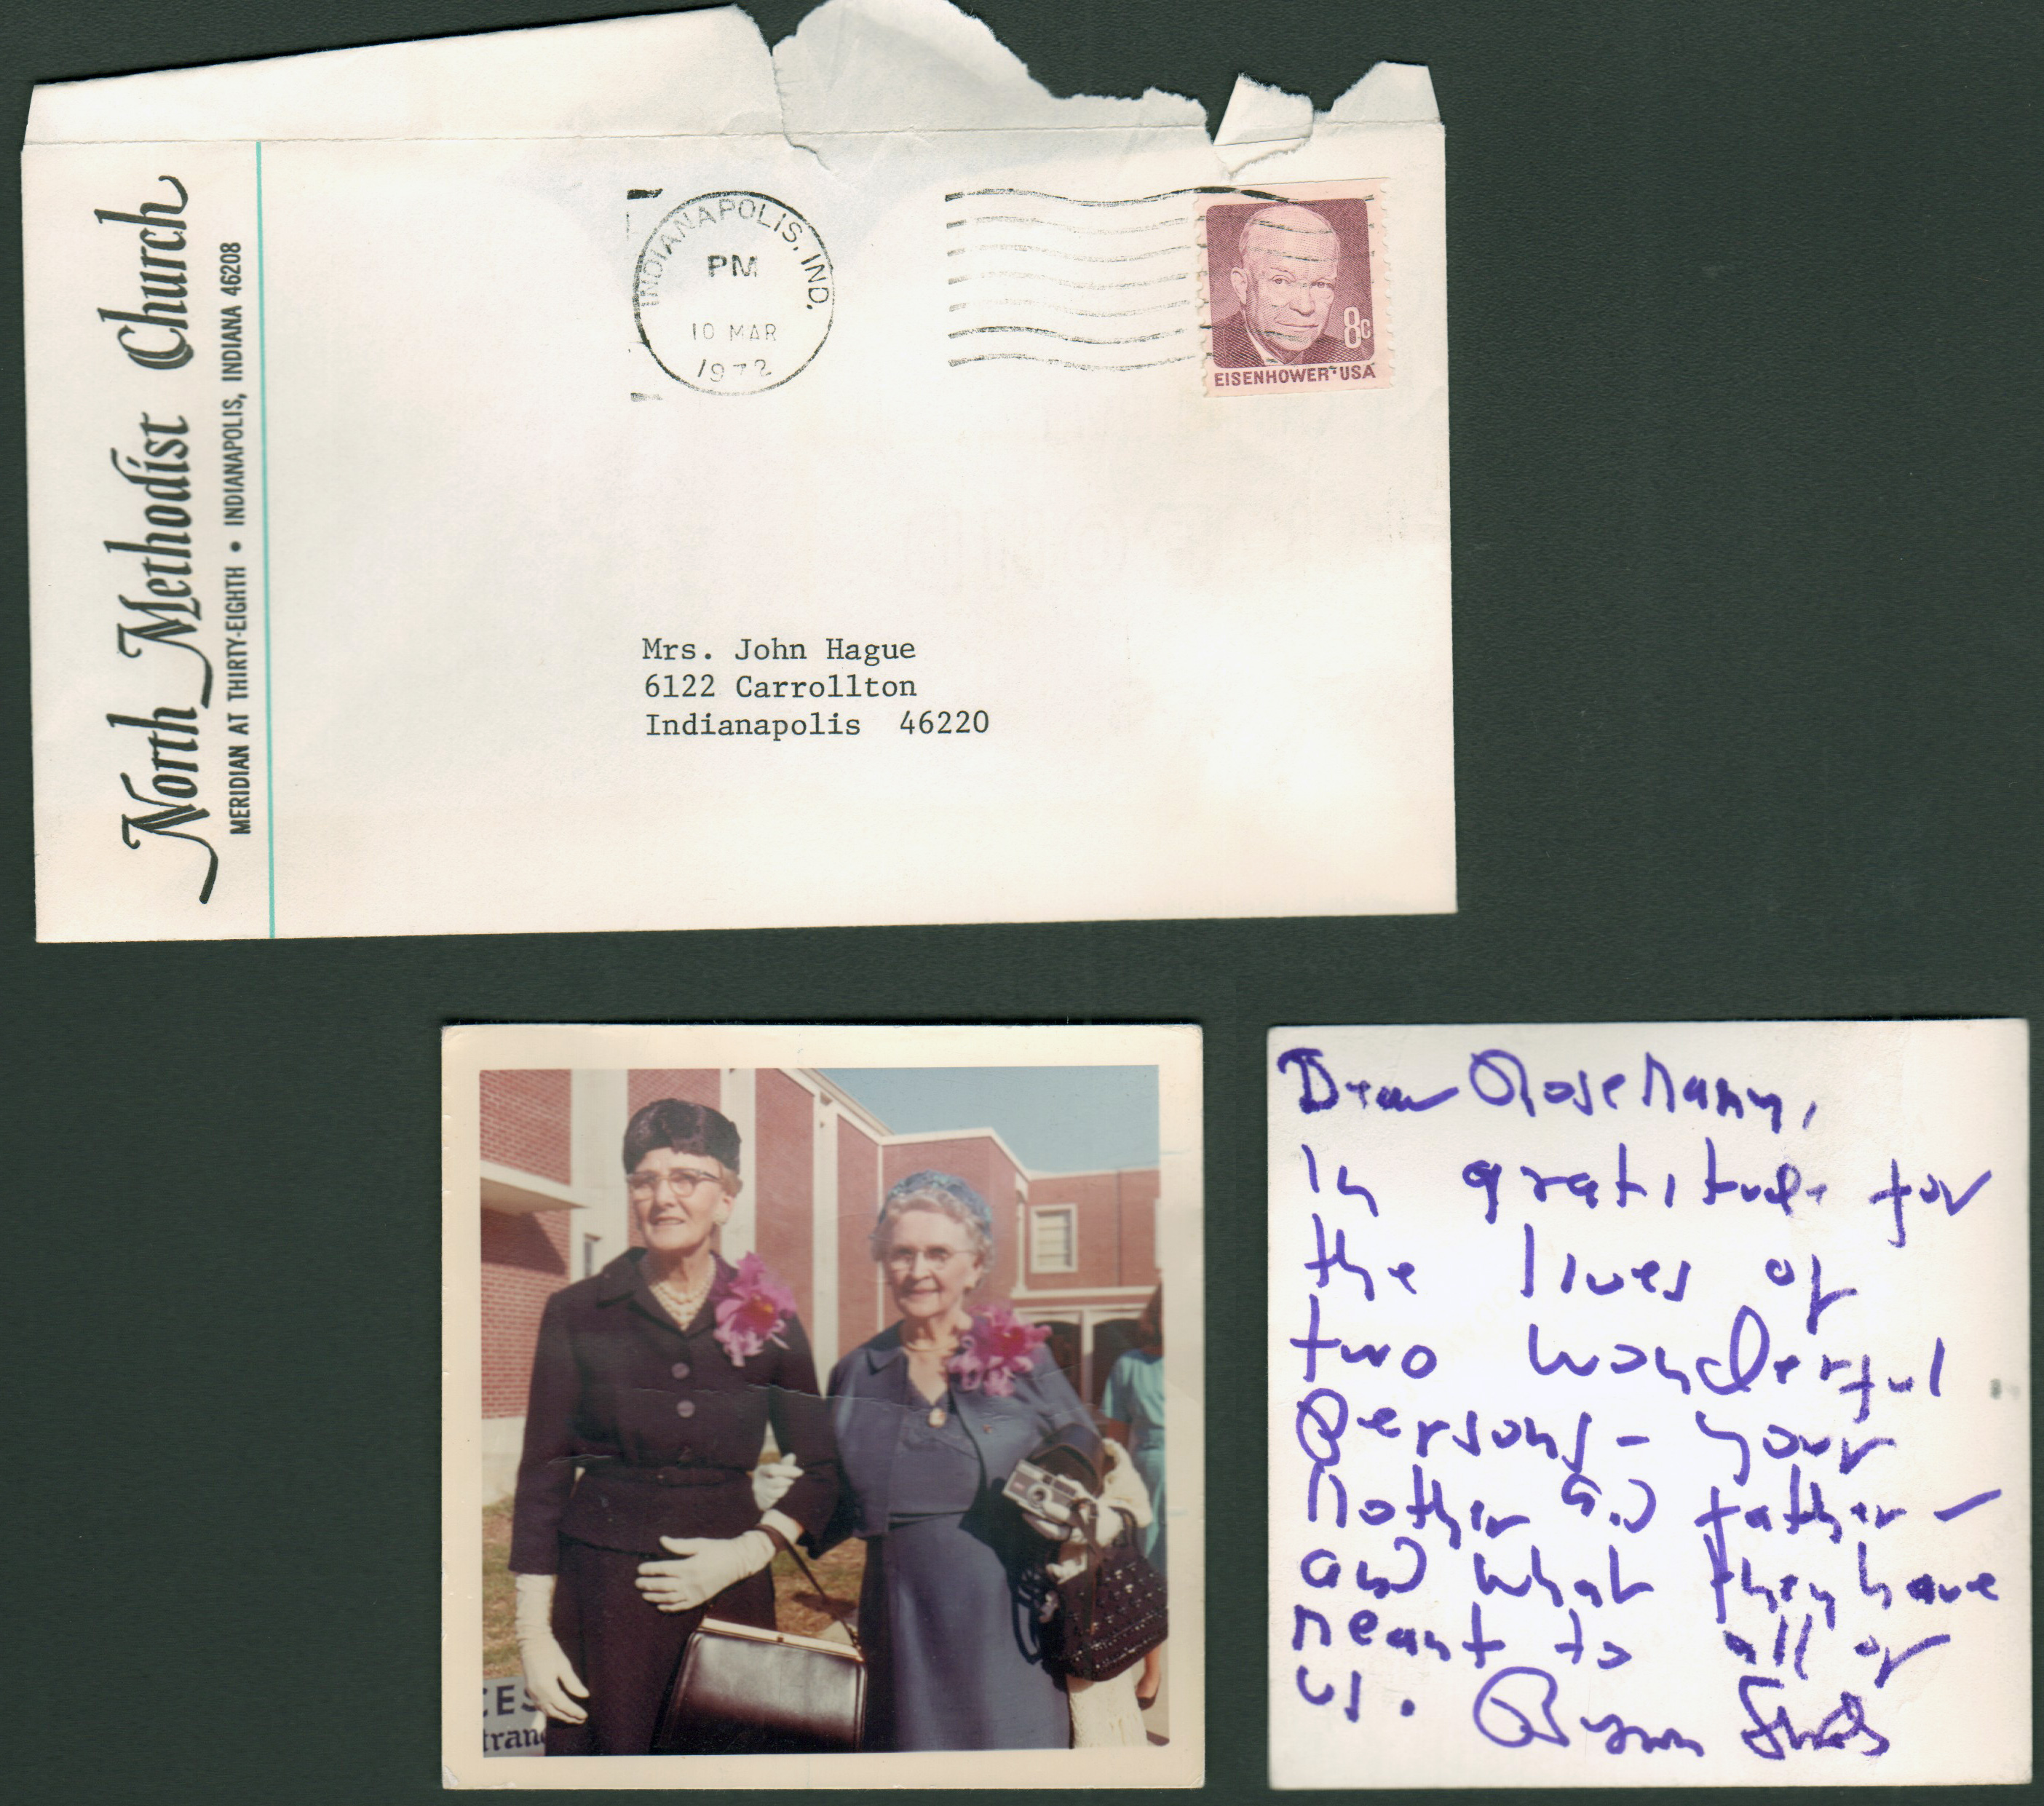 North Methodist Church
MERIDIAN AT THIRTY-EIGHTH • INDIANAPOLIS, INDIANA 46208
INDIANAPOLIS, IND.
PM
10 MAR
1972
8c
EISENHOWER·USA
Mrs. John Hague
6122 Carrollton
Indianapolis 46220
CES
tran
Dear Rosemary,
In gratitude for
the lives of
two wonderful
Persons - your
Mother and father -
and what they have
meant to all of
us.